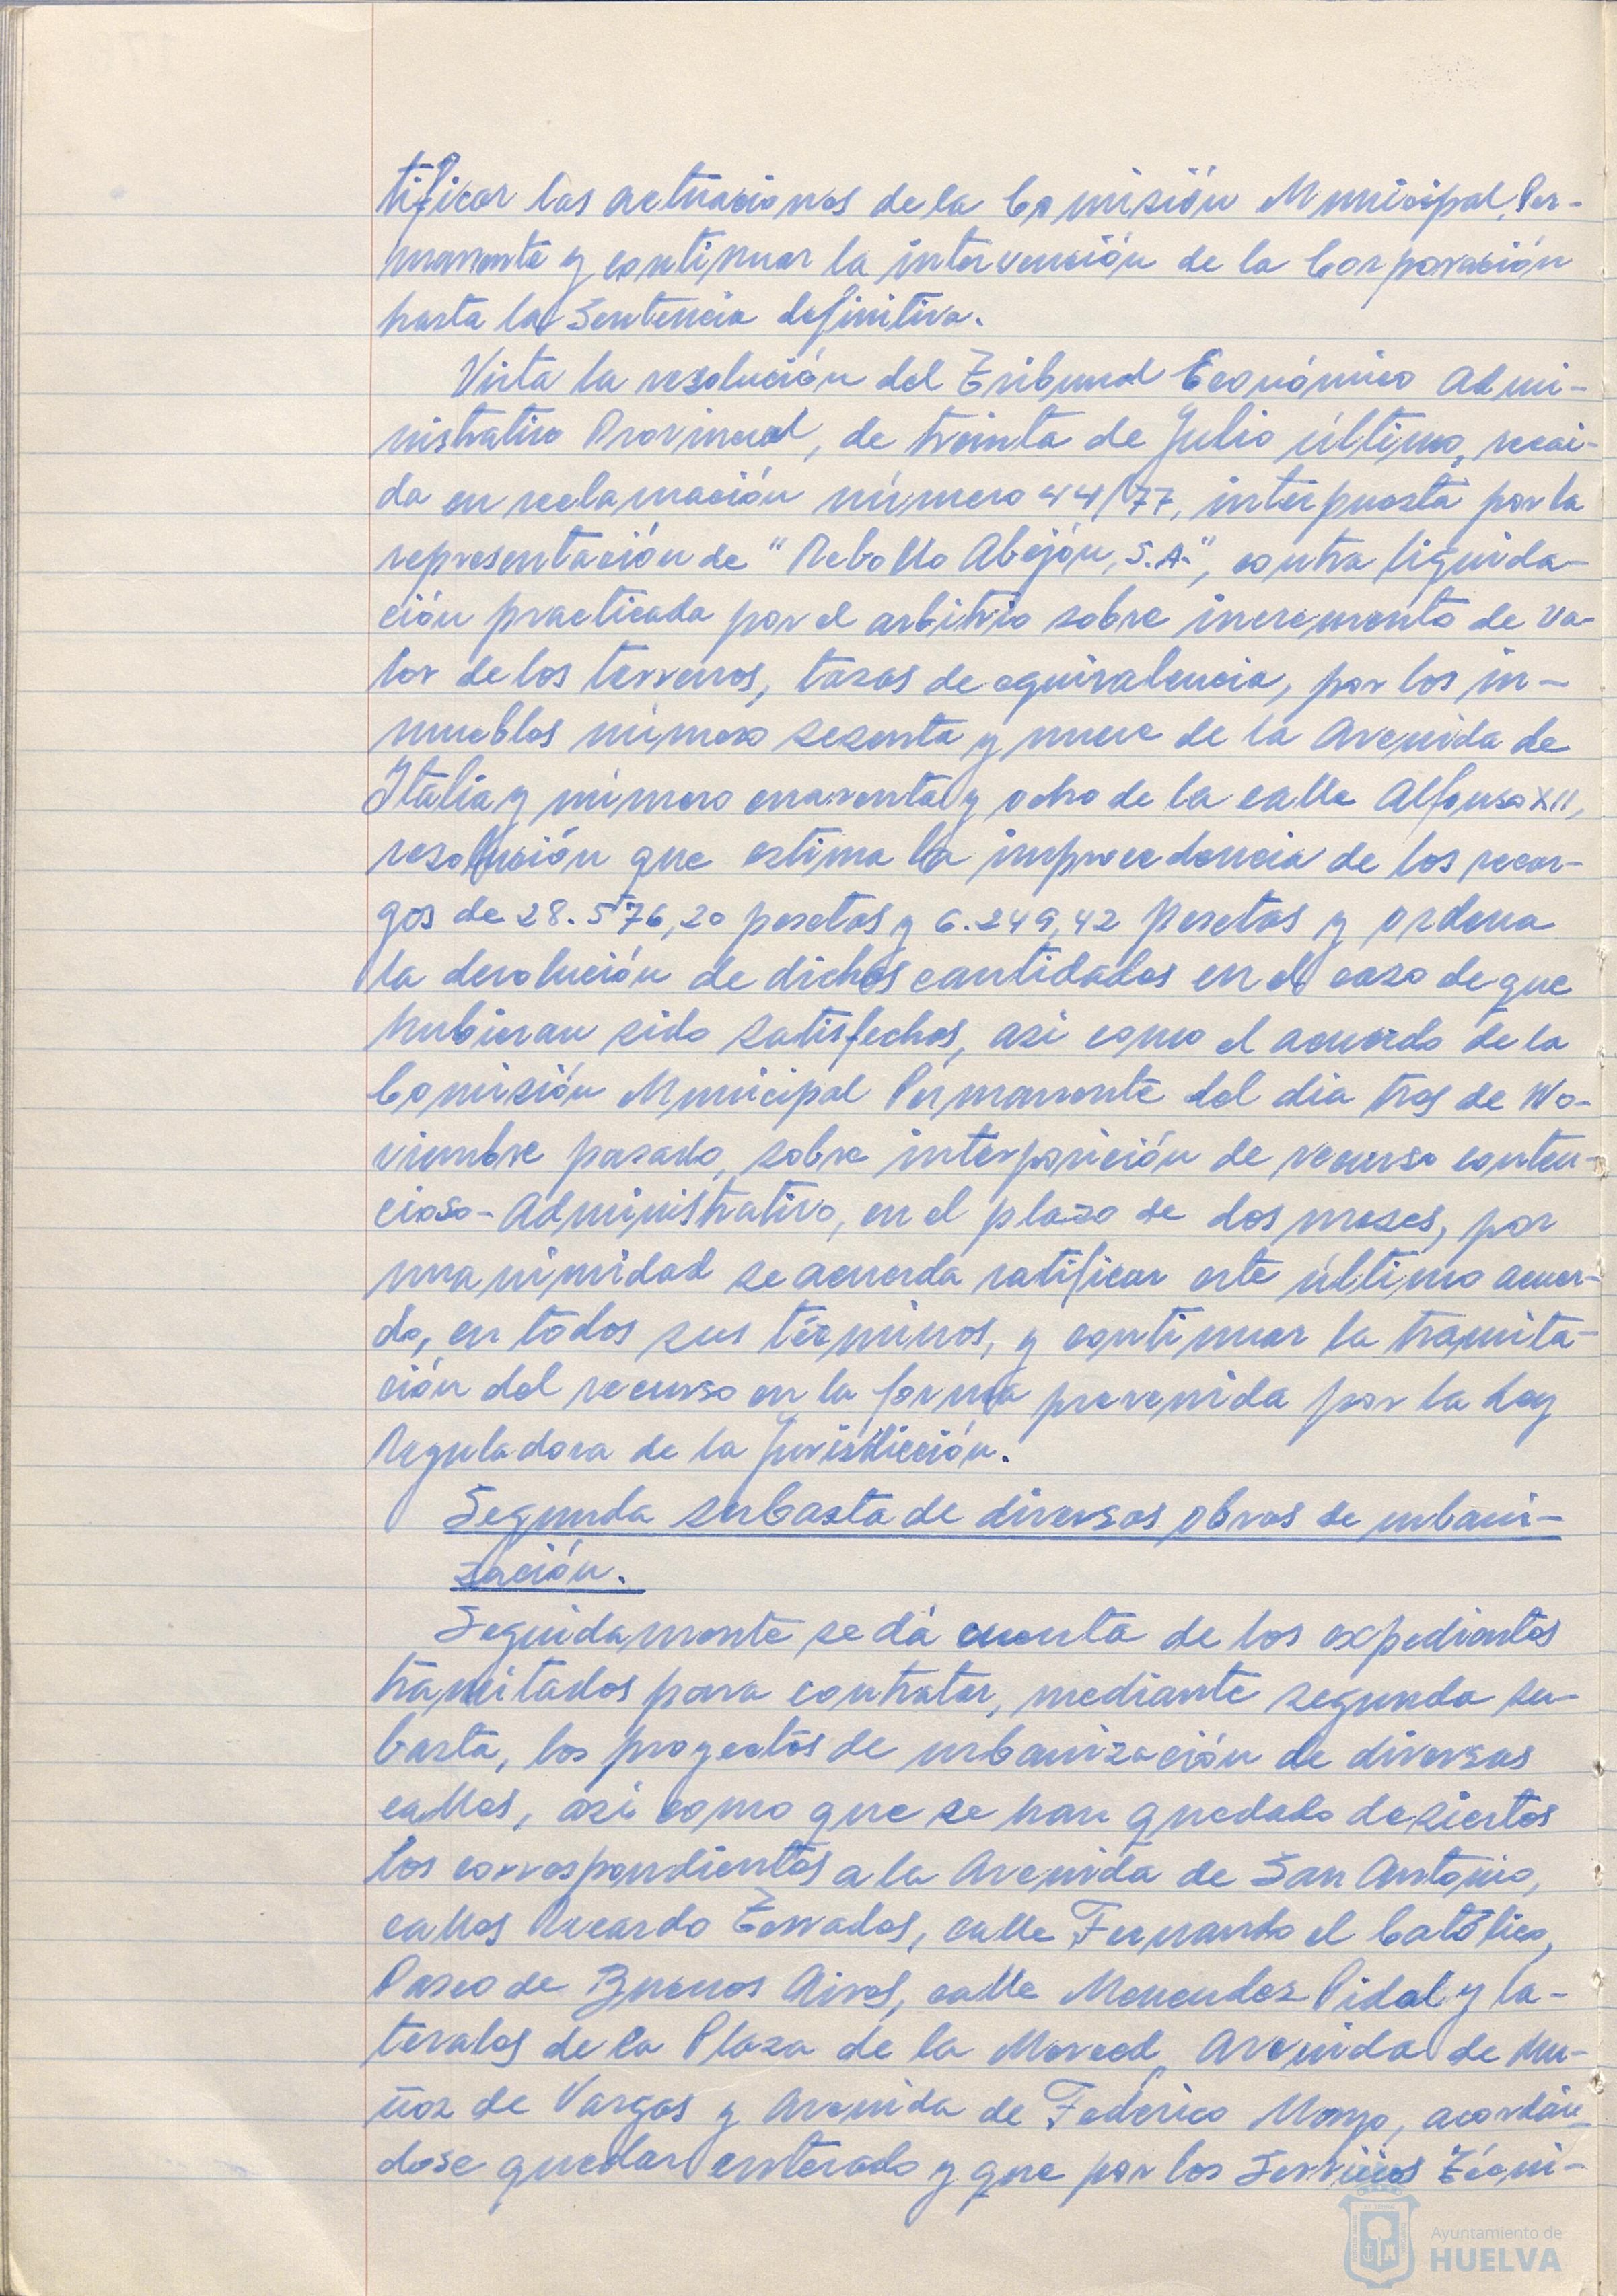 tificar las actuaciones de la Comisión Municipal Per-
manente y continuar la intervención de la Corporación
hasta la Sentencia definitiva.
Vista la resolución del Tribunal Económico Admi-
nistrativo Provincial, de treinta de Julio último, recai-
da en reclamación número 44/77, interpuesta por la
representación de "Rebollo Abejón, S.A.", contra liquida-
ción practicada por el arbitrio sobre incremento de va-
lor de los terrenos, tasas de equivalencia, por los in-
muebles número sesenta y nueve de la Avenida de
Italia y número cuarenta y ocho de la calle Alfonso XII,
resolución que estima la improcedencia de los recar-
gos de 28.576,20 pesetas y 6.249,42 pesetas y ordena
la devolución de dichas cantidades en el caso de que
hubieran sido satisfechas, asi como el acuerdo de la
Comisión Municipal Permanente del dia tres de No-
viembre pasado, sobre interposición de recurso conten-
cioso-Administrativo, en el plazo de dos meses, por
unanimidad se acuerda ratificar este último acuer-
do, en todos sus términos, y continuar la tramita-
ción del recurso en la forma prevenida por la Ley
Reguladora de la Jurisdicción.
Segunda subasta de diversas obras de urbani-
zación.
Seguidamente se dá cuenta de los expedientes
tramitados para contratar, mediante segunda su-
basta, los proyectos de urbanización de diversas
calles, asi como que se han quedado desiertos
los correspondientes a la Avenida de San Antonio,
calles Ricardo Terrades, calle Fernando el Católico,
Paseo de Buenos Aires, calle Menendez Pidal y la-
terales de la Plaza de la Merced, Avenida de Mu-
ñoz de Vargas y Avenida de Federico Mayo, acordán-
dose quedar enterado y que por los Servicios Técni-
Ayuntamiento de
HUELVA